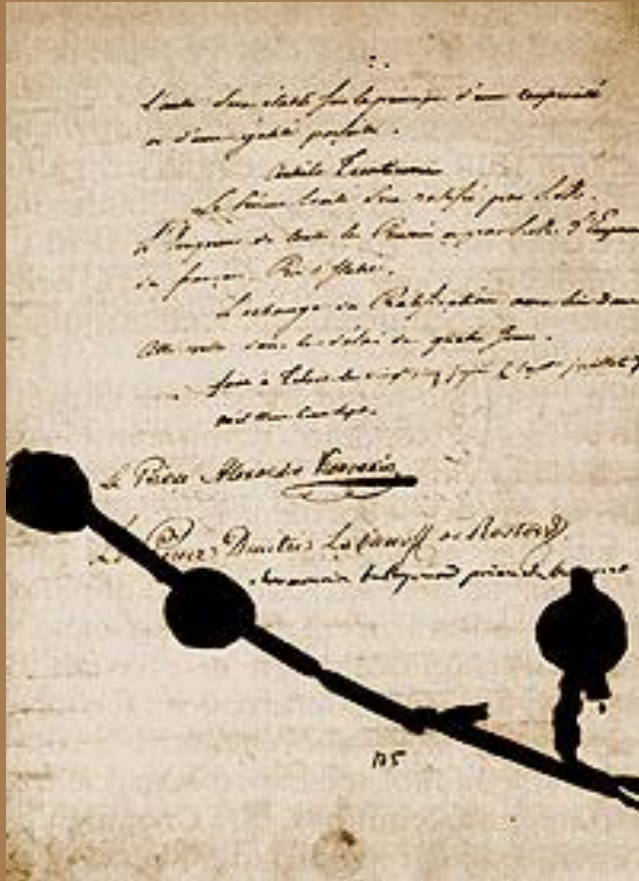 sera établi sur le principe d'une réciprocité
et d'une égalité parfaite.
Article
Le présent traité sera ratifié par
l'Empereur de toutes les Russies et par l'Empereur
des français, Roi d'Italie.
L'échange des Ratifications aura lieu dans
cette ville dans le délai de quatre jours.
fait à Tilsit le juillet)
mil huit cent sept.
Le Prince Alexandre Kourakin
Le Prince Dimitry Labanoff de Rostoff
prince de
125